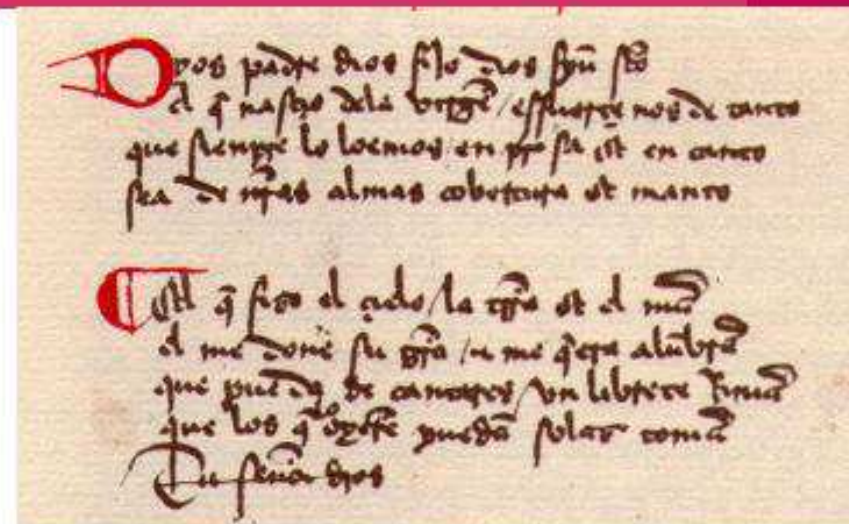 Dyos padre dios fijo dios spũ sc̃o
el q̃ nasçio dela virgẽ / esfuerçe nos de tanto
que sienpre lo loemos en prosa et en canto
sea de nr̃as almas cobertura et manto
El q̃ fizo el çielo / la tr̃ra et el mar̃
el me done su gr̃a / e me q̃era alũbrar̃
que pueda de cantares / vn librete Rimar̃
que los q̃ lo oyerẽ puedã solaz tomar̃
Tu señor dios